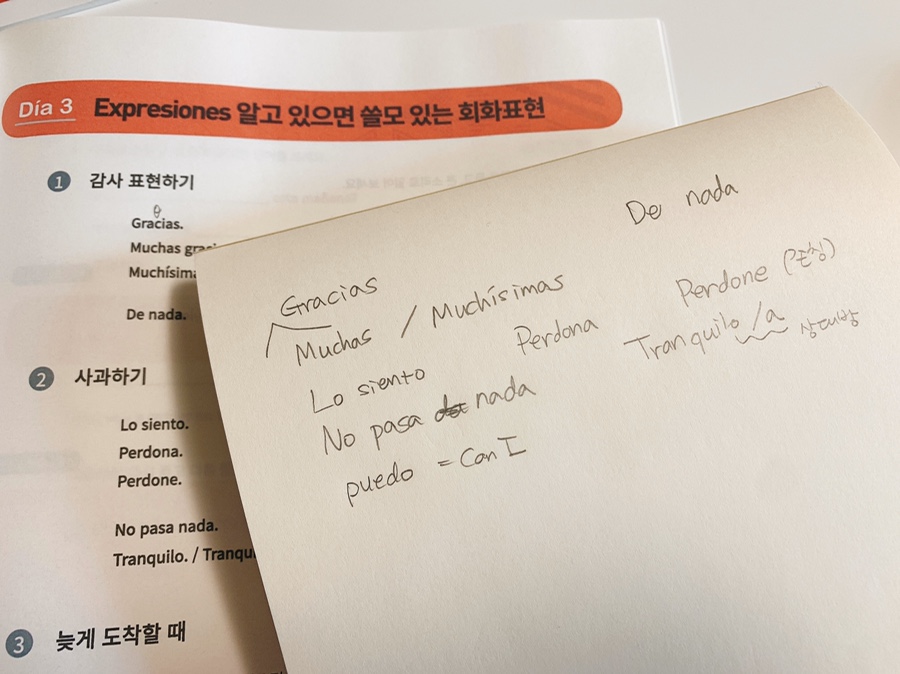 Día 3 Expresiones 알고 있으면 쓸모 있는 회화표현
1 감사 표현하기
Gracias.
Muchas
Muchísima
De nada.
2 사과하기
Lo siento.
Perdona.
Perdone.
No pasa nada.
Tranquilo. / Tranqu
3 늦게 도착할 때
De nada
Gracias
Muchas / Muchísimas
Perdona
Perdone (존칭)
Tranquilo /a 상대방
Lo siento
No pasa nada
puedo = Can I